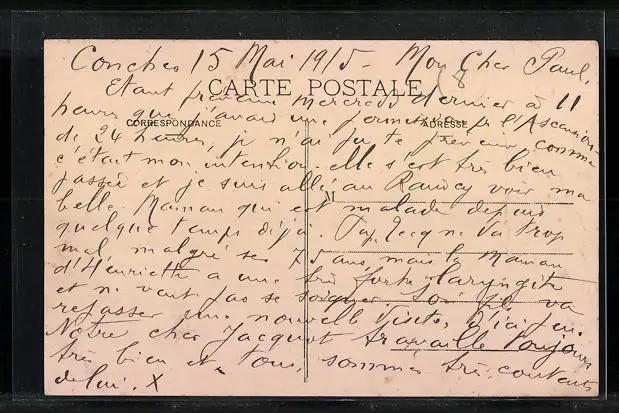 Conches 15 Mai 1915 - Mon Cher Paul,
CARTE POSTALE
Etant prévenu Mercredi dernier à 11
heures que j'avais une permission pr l'Ascension
CORRESPONDANCE
ADRESSE
de 24 heures, je n'ai pu te prévenir comme
c'était mon intention. elle s'est très bien
passée et je suis allé au Raincy voir ma
M
belle Maman qui est malade depuis
quelque temps déjà. va trop
mal malgré ses 75 ans, mais la Maman
d'Henriette a une très forte laryngite
et ne veut pas se soigner. va
repasser une nouvelle visite,
Notre cher Jacquot travaille toujours
très bien et tous sommes très contents
de lui. X